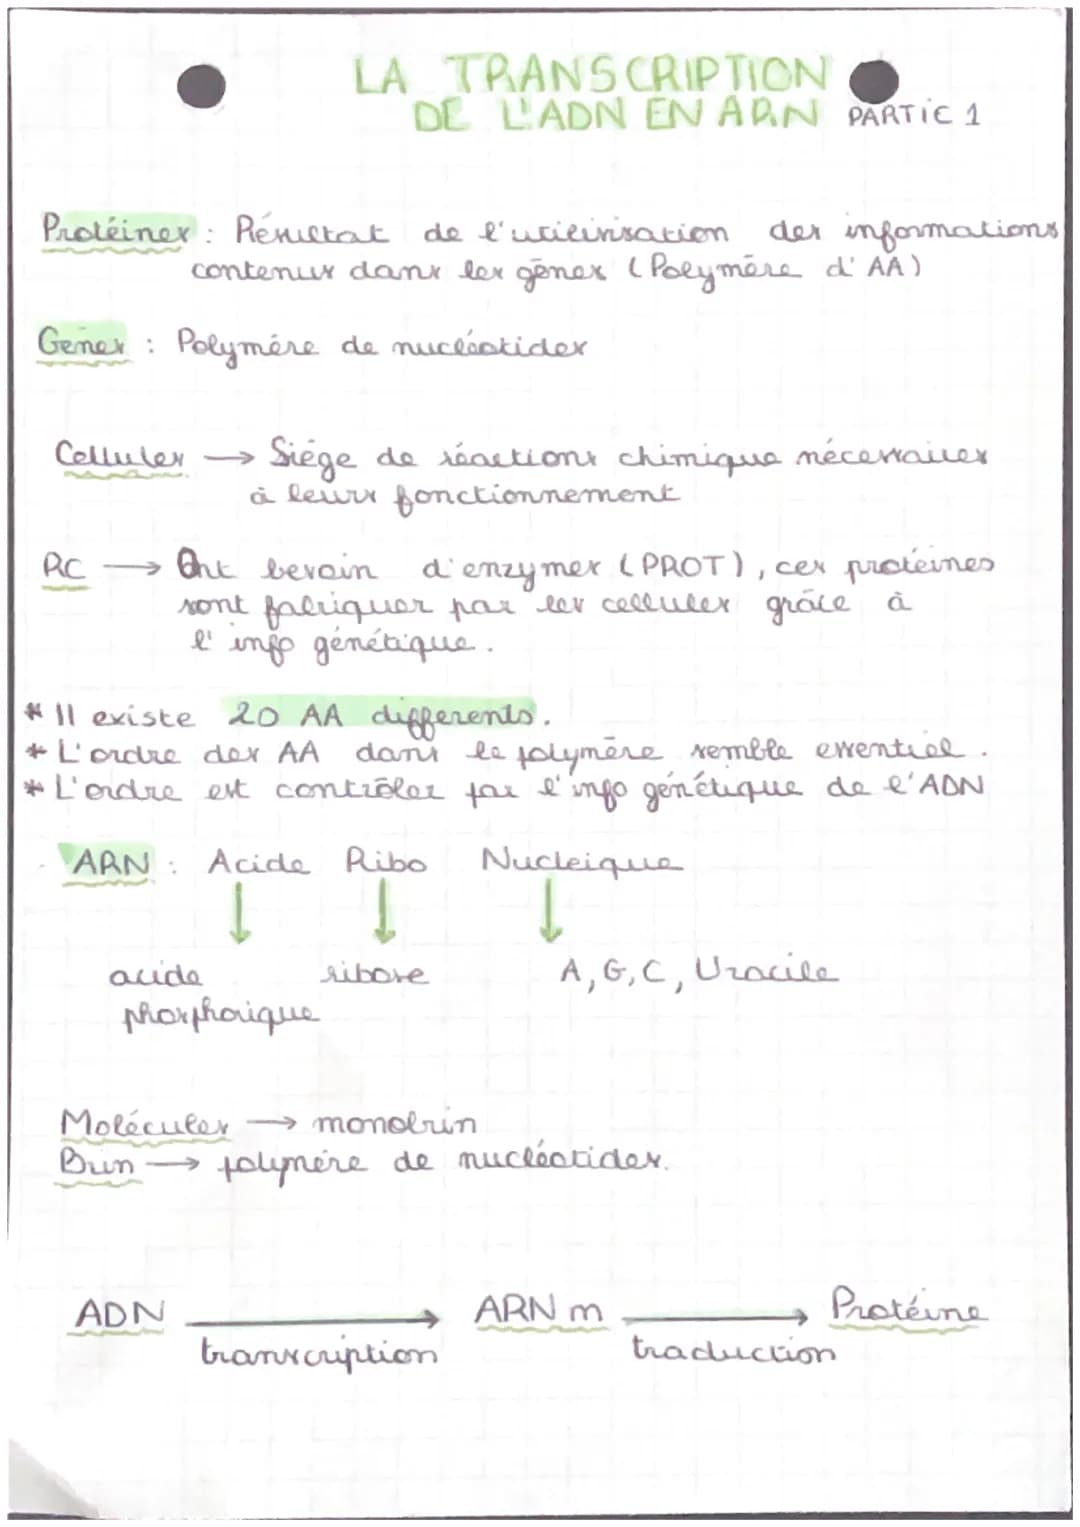 LA TRANSCRIPTION
DE L'ADN EN ARN PARTIE 1
Protéines : Résultat de l'utilinisation des informations
contenus dans les gênes (Polymère d'AA)
Genes : Polymère de nucléotides
Cellules → Siège de réactions chimique nécessaires
à leurs fonctionnement
RC → Ont besoin d'enzymes (PROT), ces protéines
sont fabriquer par les cellules grâce à
l'info génétique.
* Il existe 20 AA differents.
* L'ordre des AA dans le polymère semble essentiel.
* L'ordre est contrôler par l'info génétique de l'ADN
ARN : Acide Ribo Nucleique
↓ ↓ ↓
acide ribose A, G, C, Uracile
phosphorique
Molécules → monobrin
Brin → polymère de nucléotides.
ADN → ARN m → Protéine
transcription traduction